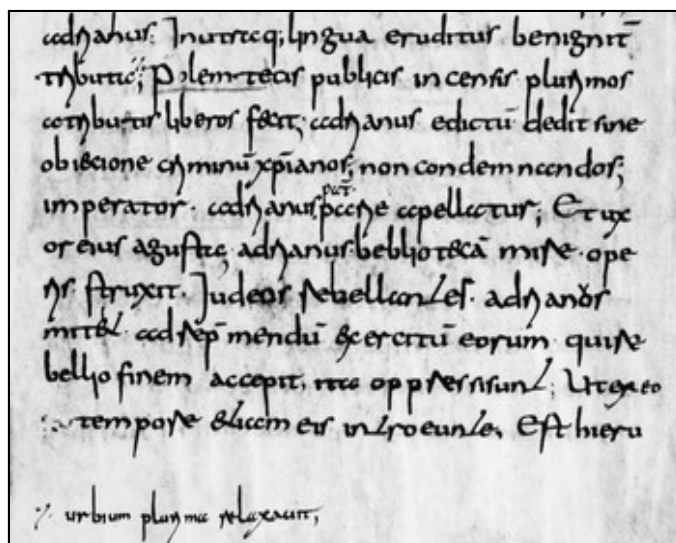 adrianus; Inutraq; lingua eruditus benignit̄
tributis; publicis incensis plurimos
atributis liberos fecit; adrianus edictū dedit sine
obiecione criminū xp̄ianos; non condemnandos;
pat̄
imperator· adrianus patrie apellatur; Et ux
or eius agusta; adrianus bebliotecā mire ope
ris struxit. Iudeos rebellantes· adrianus
mittet adrep̄mendū exercitū eorum quire
bellio finem accepit, ita oppressi sunt; Ut exeo
tempore etiam eis introeunte, Est hieru
·/. urbium plurima relaxauit;